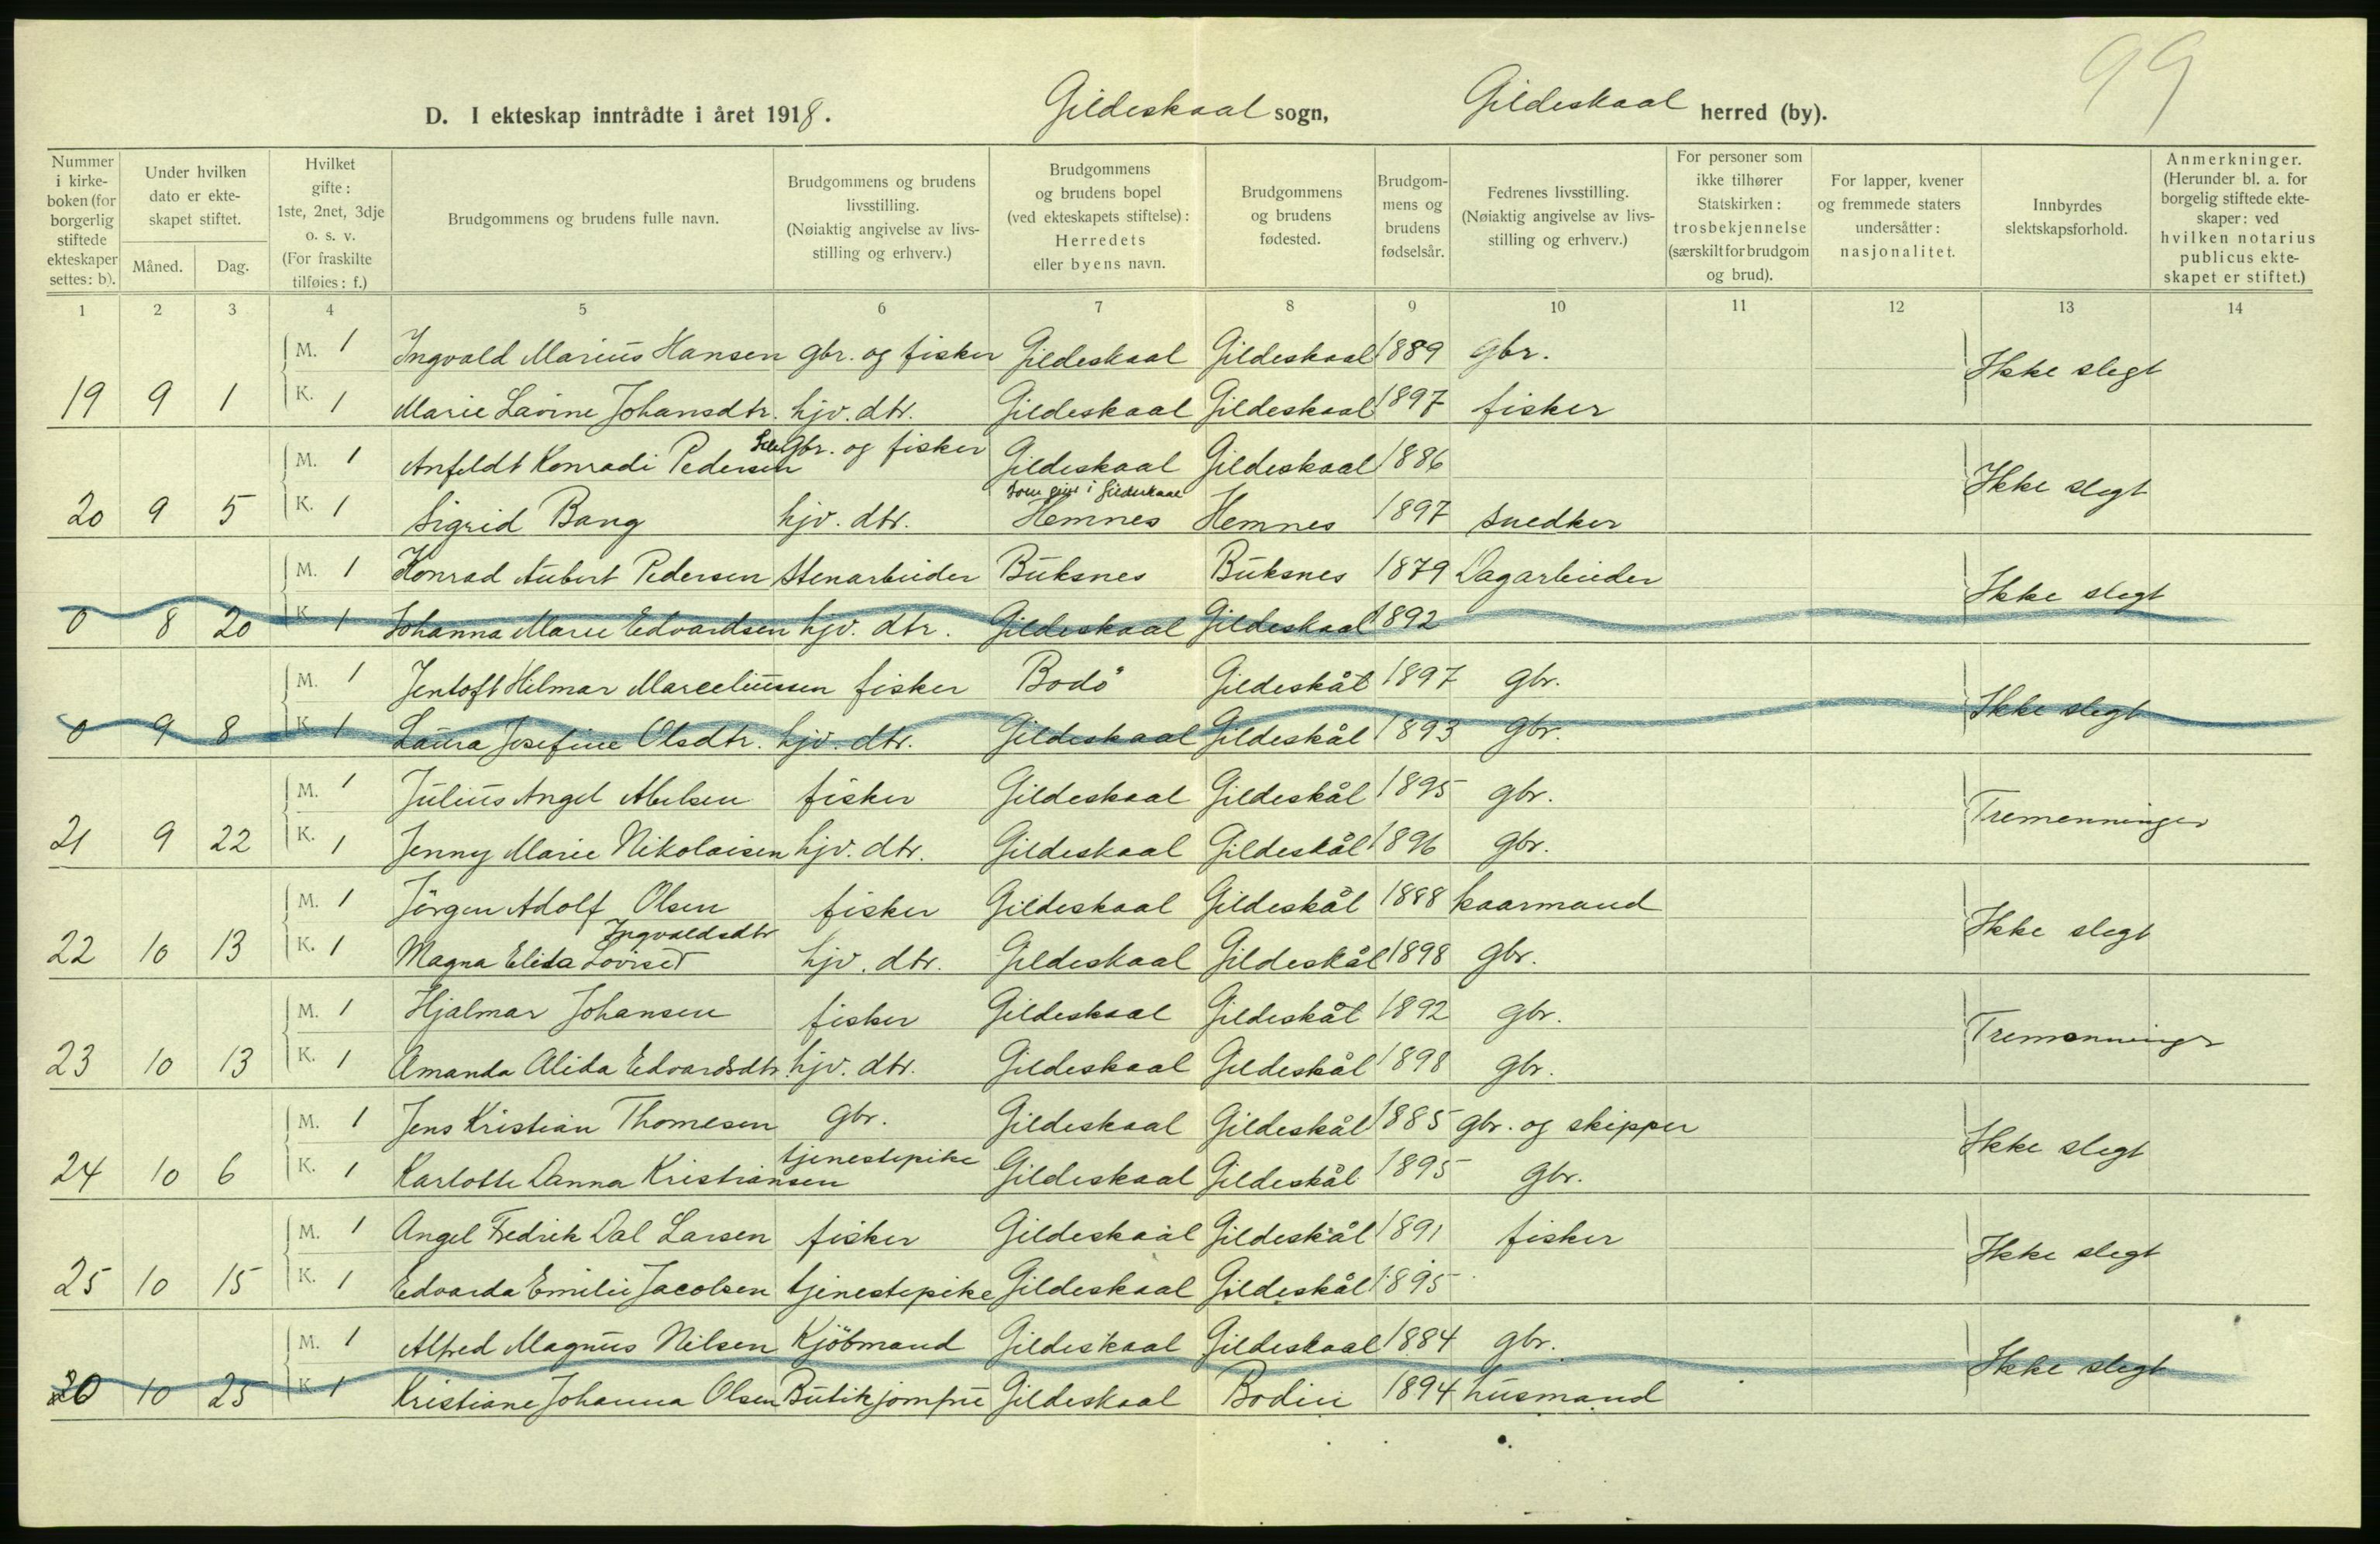 99
D. I ekteskap inntrådte i året 1918. Gildeskaal sogn, Gildeskaal herred (by).
Nummer i kirkeboken (for borgerlig stiftede ekteskaper settes: b).
Under hvilken dato er ekteskapet stiftet.
Måned. Dag.
Hvilket gifte: 1ste, 2net, 3dje o. s. v. (For fraskilte tilføies: f.)
Brudgommens og brudens fulle navn.
Brudgommens og brudens livsstilling. (Nøiaktig angivelse av livsstilling og erhverv.)
Brudgommens og brudens bopel (ved ekteskapets stiftelse): Herredets eller byens navn.
Brudgommens og brudens fødested.
Brudgommens og brudens fødselsår.
Fedrenes livsstilling. (Nøiaktig angivelse av livsstilling og erhverv.)
For personer som ikke tilhører Statskirken: trosbekjennelse (særskilt for brudgom og brud).
For lapper, kvener og fremmede staters undersåtter: nasjonalitet.
Innbyrdes slektskapsforhold.
Anmerkninger. (Herunder bl. a. for borgelig stiftede ekteskaper: ved hvilken notarius publicus ekteskapet er stiftet.)
1 2 3 4 5 6 7 8 9 10 11 12 13 14
M. 1 Ingvald Marius Hansen gbr. og fisker Gildeskaal Gildeskaal 1889 gbr. Ikke slegt
19 9 1 K. 1 Marie Lavine Johansdtr. hjv. dtr. Gildeskaal Gildeskaal 1897 fisker
M. 1 Anfeldt Konradi Pedersen Gbr. og fisker Gildeskaal Gildeskaal 1886 Ikke slegt
i Gildeskaal
20 9 5 K. 1 Sigrid Bang hjv. dtr. Hemnes Hemnes 1897 snedker
M. 1 Konrad Aubert Pedersen Stenarbeider Buksnes Buksnes 1879 Dagarbeider Ikke slegt
0 8 20 K. 1 Johanna Marie Edvardsen hjv. dtr. Gildeskaal Gildeskaal 1892
M. 1 Jentoft Hilmar Marceliussen fisker Bodö Gildeskål 1897 gbr. Ikke slegt
0 9 8 K. 1 Laura Josefine Olsdtr. hjv. dtr. Gildeskaal Gildeskål 1893 gbr.
M. 1 Julius Angel Abelsen fisker Gildeskaal Gildeskål 1895 gbr. Tremenninger
21 9 22 K. 1 Jenny Marie Nikolaisen hjv. dtr. Gildeskaal Gildeskål 1896 gbr.
M. 1 Jörgen Adolf Olsen fisker Gildeskaal Gildeskål 1888 kaarmand Ikke slegt
Ingvaldsdtr
22 10 13 K. 1 Magna Elida Lovise hjv. dtr. Gildeskaal Gildeskål 1898 gbr.
M. 1 Hjalmar Johansen fisker Gildeskaal Gildeskål 1892 gbr. Tremenninger
23 10 13 K. 1 Amanda Alida Edvardsdtr. hjv. dtr. Gildeskaal Gildeskål 1898 gbr.
M. 1 Jens Kristian Thomesen gbr. Gildeskaal Gildeskål 1885 gbr. og skipper Ikke slegt
24 10 6 K. 1 Karlotte Danna Kristiansen tjenestepike Gildeskaal Gildeskål 1895 gbr.
M. 1 Angel Fredrik Dal Larsen fisker Gildeskaal Gildeskål 1891 fisker Ikke slegt
25 10 15 K. 1 Edvarda Emilie Jacobsen tjenestepike Gildeskaal Gildeskål 1895
M. 1 Alfred Magnus Nilsen Kjöbmand Gildeskaal Gildeskaal 1884 gbr. Ikke slegt
0 10 25 K. 1 Kristiane Johanna Olsen Butikjomfru Gildeskaal Bodin 1894 husmand